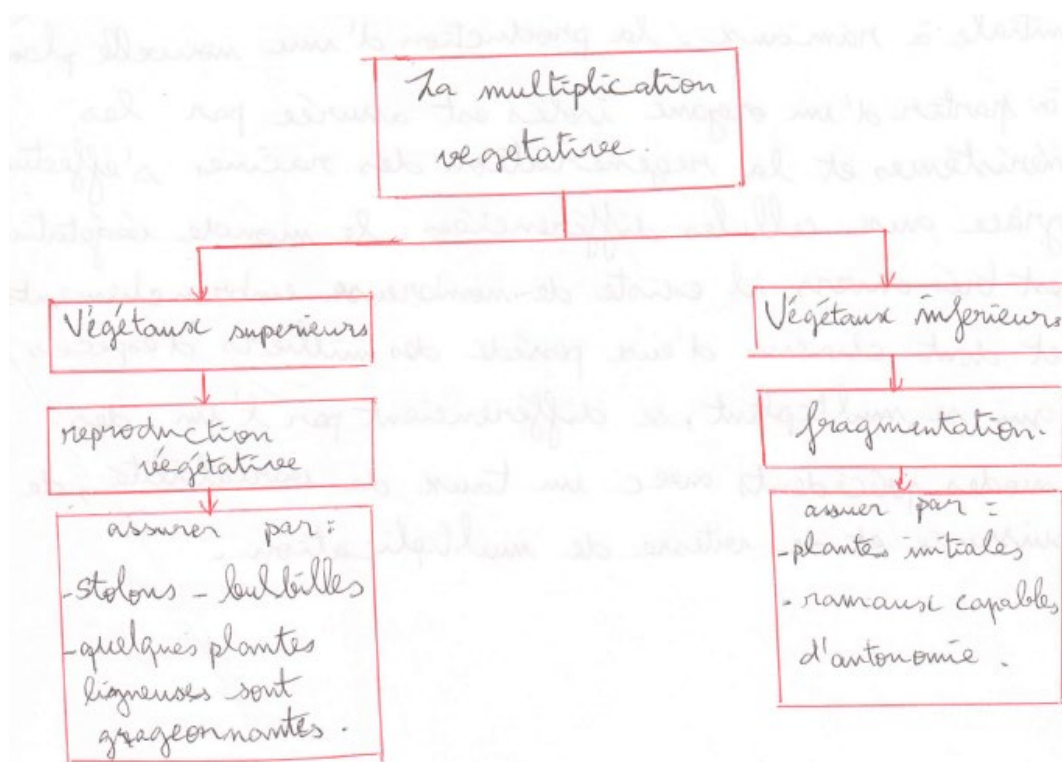 La multiplication
végétative.
Végétaux supérieurs
reproduction
végétative
assurer par:
- stolons - bulbilles
- quelques plantes
ligneuses sont
grageonnantes.
Végétaux inférieurs
fragmentation.
assuer par:
- plantes initiales
- ramaux capables
d'antonomie.